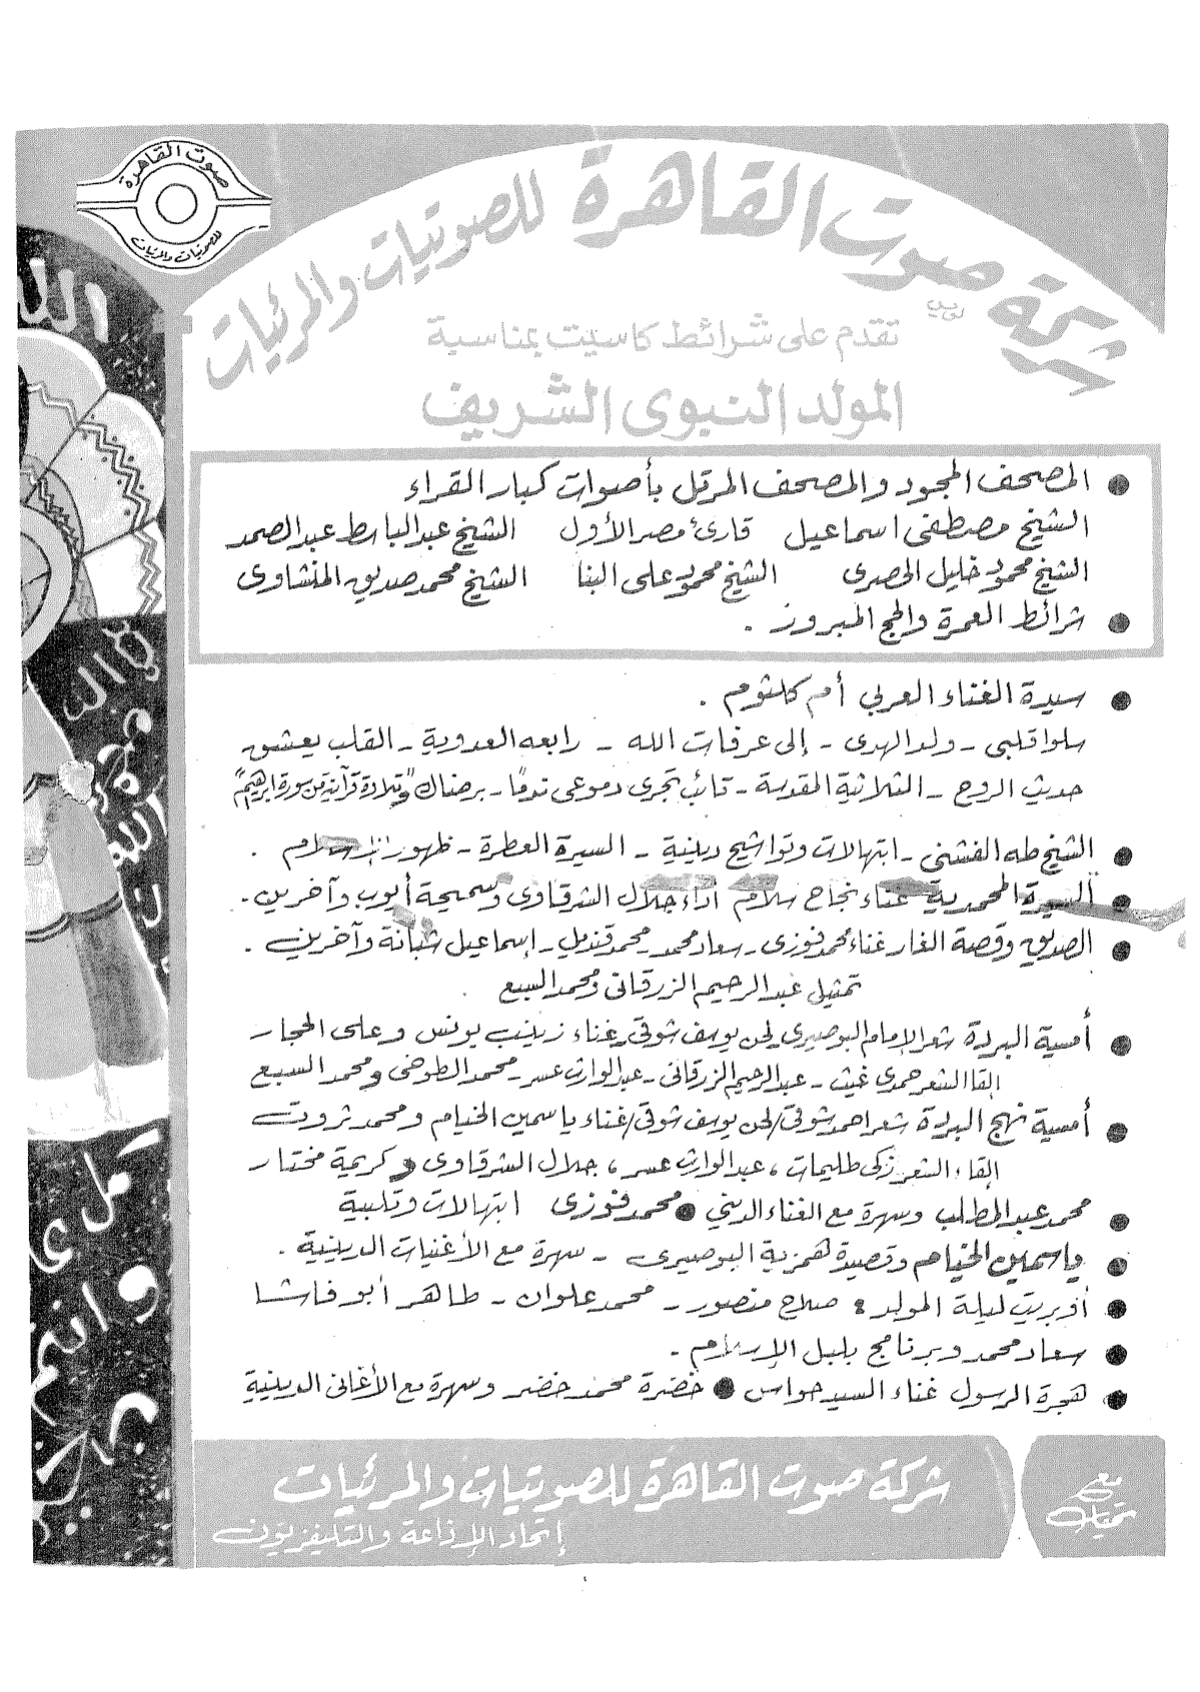 صوت القاهرة
للصوتيات والمرئيات
شركة صوت القاهرة للصوتيات والمرئيات
تقدم على شرائط كاسيت بمناسبة
المولد النبوى الشريف
● المصحف المجود والمصحف المرتل بأصوات كبار القراء
الشيخ مصطفى اسماعيل قارئ مصر الأول الشيخ عبد الباسط عبد الصمد
الشيخ محمود خليل الحصرى الشيخ محمود على البنا الشيخ محمد صديق المنشاوى
● شرائط العمرة والحج المبرور .
● سيدة الغناء العربي أم كلثوم .
سلوا قلبى - ولد الهدى - إلى عرفات الله - رابعه العدوية - القلب يعشق
حديث الروح - الثلاثية المقدسة - تائب تجرى دموعى ندمًا - برضاك "وتلادة قرآنية من سورة ابراهيم"
● الشيخ طه الفشنى - ابتهالات وتواشيح دينية - السيرة العطرة - ظهور الإسلام .
● السيرة المحمدية غناء نجاح سلام أداء جلال الشرقاوى وسميحة أيوب وآخرين .
● الصديق وقصة الغار غناء محمد فوزى - سعاد محمد - محمد قنديل - إسماعيل شبانة وآخرين .
تمثيل عبد الرحيم الزرقانى ومحمد السبع .
● أمسية البردة شعر الإمام البوصيرى لحن يوسف شوقى غناء زينب يونس وعلى الحجار
إلقا الشعر حمدى غيث - عبد الرحيم الزرقانى - عبد الوارث عسر - محمد الطوخى ومحمد السبع
● أمسية نهج البردة شعر احمد شوقى / لحن يوسف شوقى / غناء ياسمين الخيام ومحمد ثروت
إلقاء الشعر زكى طليمات ، عبد الوارث عسر ، جلال الشرقاوى وكريمة مختار
● محمد عبد المطلب وسهرة مع الغناء الديني ● محمد فوزى ابتهالات وتلبية
● ياسمين الخيام وقصيدة همزية البوصيرى - سهرة مع الأغنيات الدينية .
● أوبريت ليلة المولد : صلاح منصور - محمد علوان - طاهر أبو فاشا
● سعاد محمد وبرنامج بلبل الإسلام .
● هجرة الرسول غناء السيد حواس ● خضرة محمد خضر وسهرة مع الأغانى الدينية
شركة صوت القاهرة للصوتيات والمرئيات
إتحاد الإذاعة والتليفزيون
مع